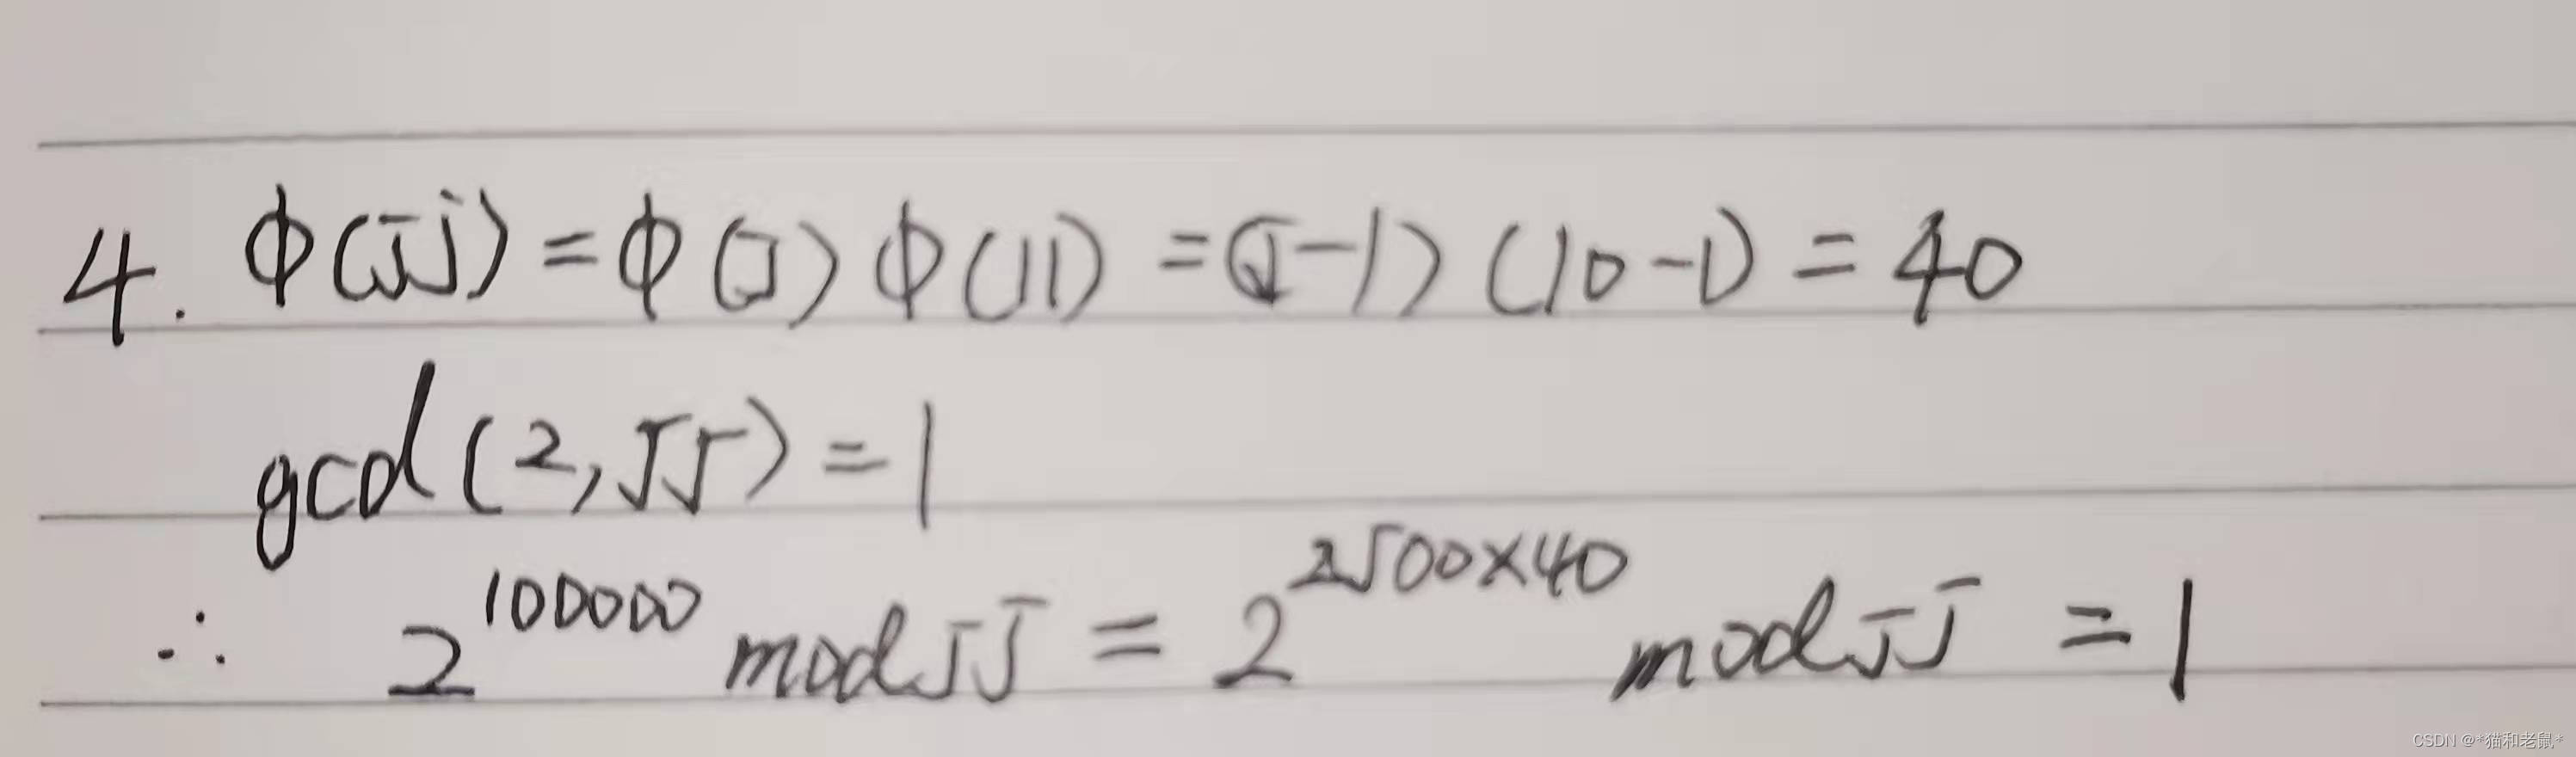 4. φ(55) = φ(5) φ(11) = (5-1) (10-1) = 40
gcd(2,55) = 1
∴ 2^100000 mod 55 = 2^2500×40 mod 55 = 1
CSDN @*猫和老鼠*